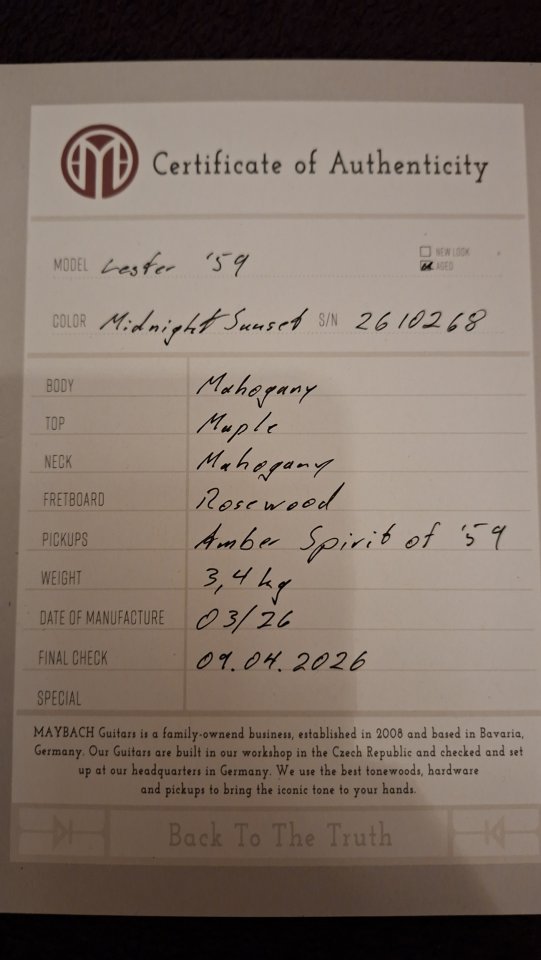 Certificate of Authenticity
MODEL Lester '59
NEW LOOK
AGED
COLOR Midnight Sunset S/N 2610268
BODY Mahogany
TOP Maple
NECK Mahogany
FRETBOARD Rosewood
PICKUPS Amber Spirit of '59
WEIGHT 3,4 kg
DATE OF MANUFACTURE 03/26
FINAL CHECK 09.04.2026
SPECIAL
MAYBACH Guitars is a family-ownend business, established in 2008 and based in Bavaria,
Germany. Our Guitars are built in our workshop in the Czech Republic and checked and set
up at our headquarters in Germany. We use the best tonewoods, hardware
and pickups to bring the iconic tone to your hands.
Back To The Truth